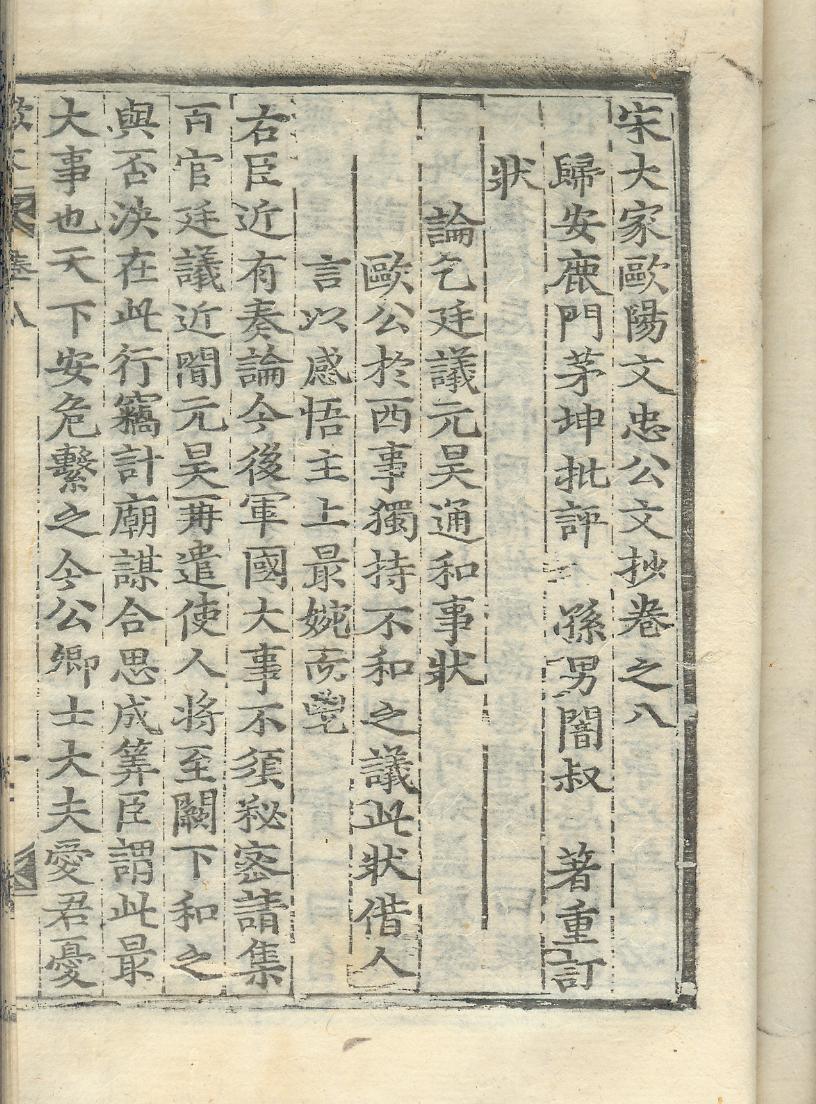 宋大家歐陽文忠公文抄卷之八
歸安鹿門茅坤批評 孫男闇叔 著重訂
狀
論乞廷議元昊通和事狀
歐公於西事獨持不和之議此狀借人
言以感悟主上最婉而
右臣近有奏論今後軍國大事不須秘密請集
百官廷議近聞元昊再遣使人將至闕下和之
與否決在此行竊計廟謀合思成筭臣謂此最
大事也天下安危繫之今公卿士大夫愛君憂